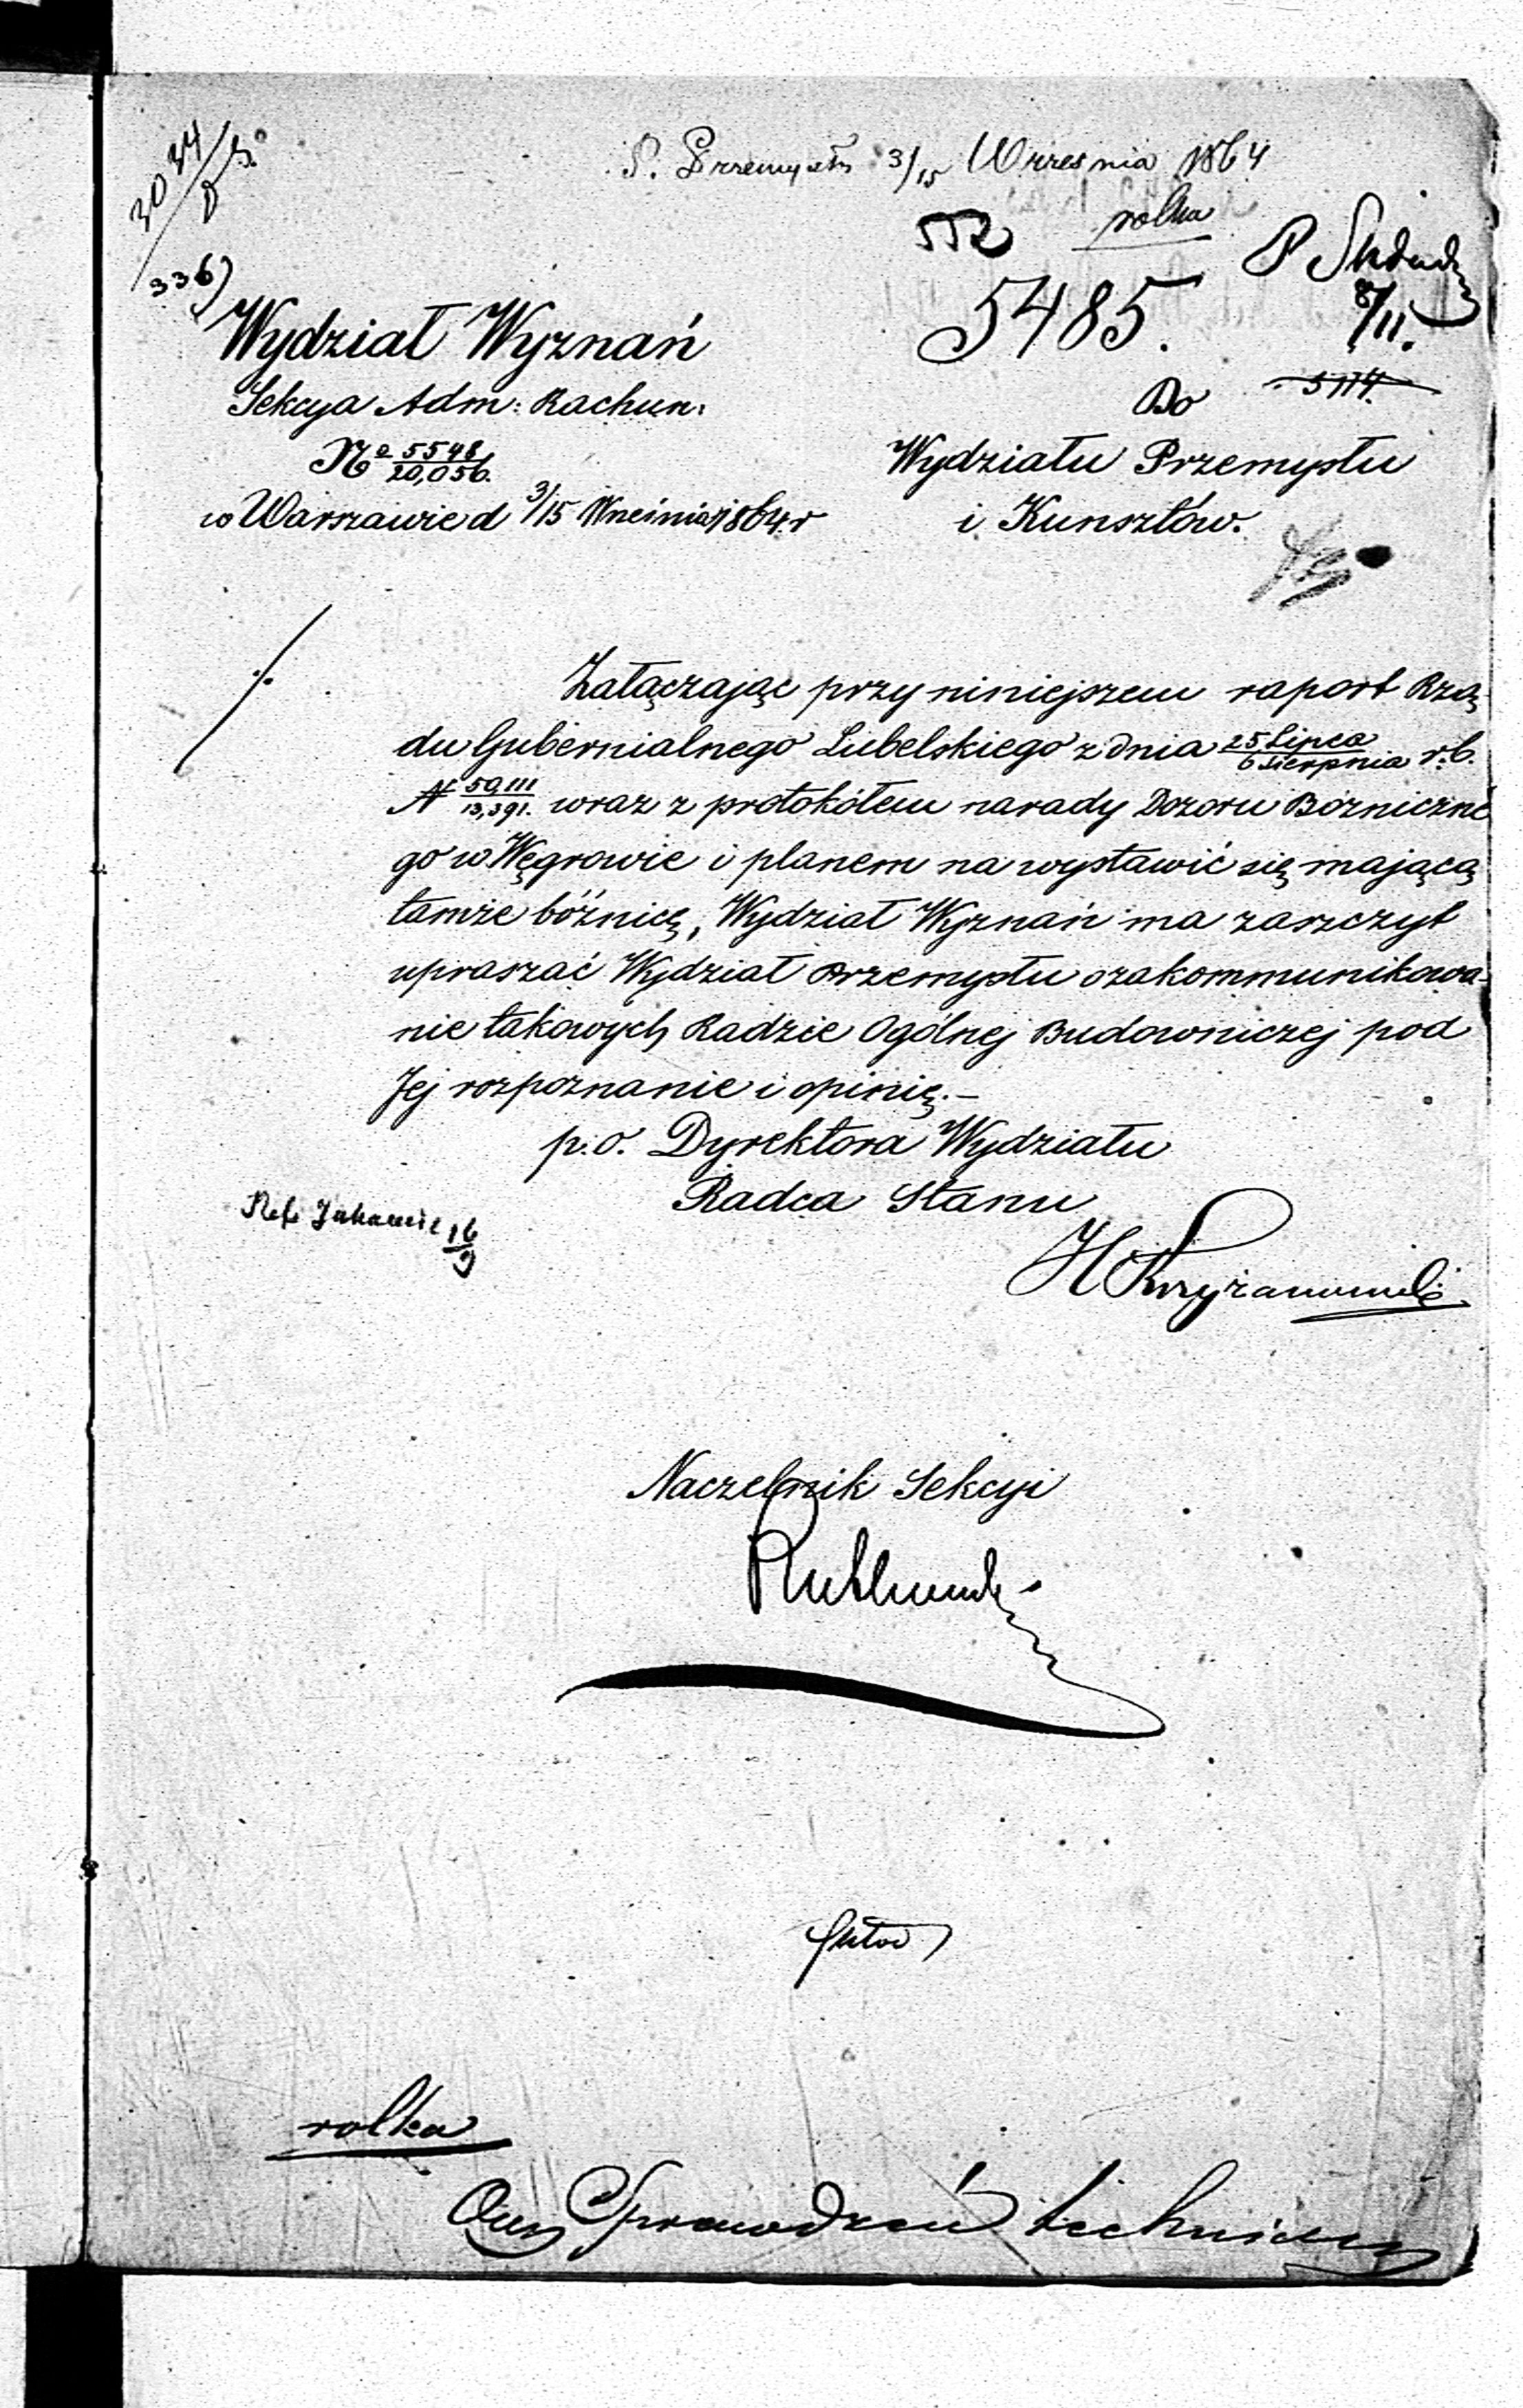 3034
336)
S. Przemysłu 3/15 Wrzesnia 1864
552 rolka
5485.
8/11.
5114
Wydział Wyznań
Sekcya Adm: Rachun:
No 5548/20,056.
w Warszawie d 3/15 Września 1864 r
Do
Wydziału Przemysłu
i Kunsztów.
Załączając przy niniejszem raport Rzą-
du Gubernialnego Lubelskiego z dnia 25 Lipca/6 Sierpnia r.b.
N 50,111/13,391. wraz z protokółem narady Dozoru Bóżniczne
go w Węgrowie i planem na wystawić się mającą
tamże bóźnicę, Wydział Wyznań ma zaszczyt
upraszać Wydział Przemysłu o zakommunikowa-
nie takowych Radzie Ogólnej Budowniczej pod
Jej rozpoznanie i opinię.–
p.o. Dyrektora Wydziału
Radca Stanu
H Krzyżanowski
16/9
Naczelnik Sekcyi
rolka